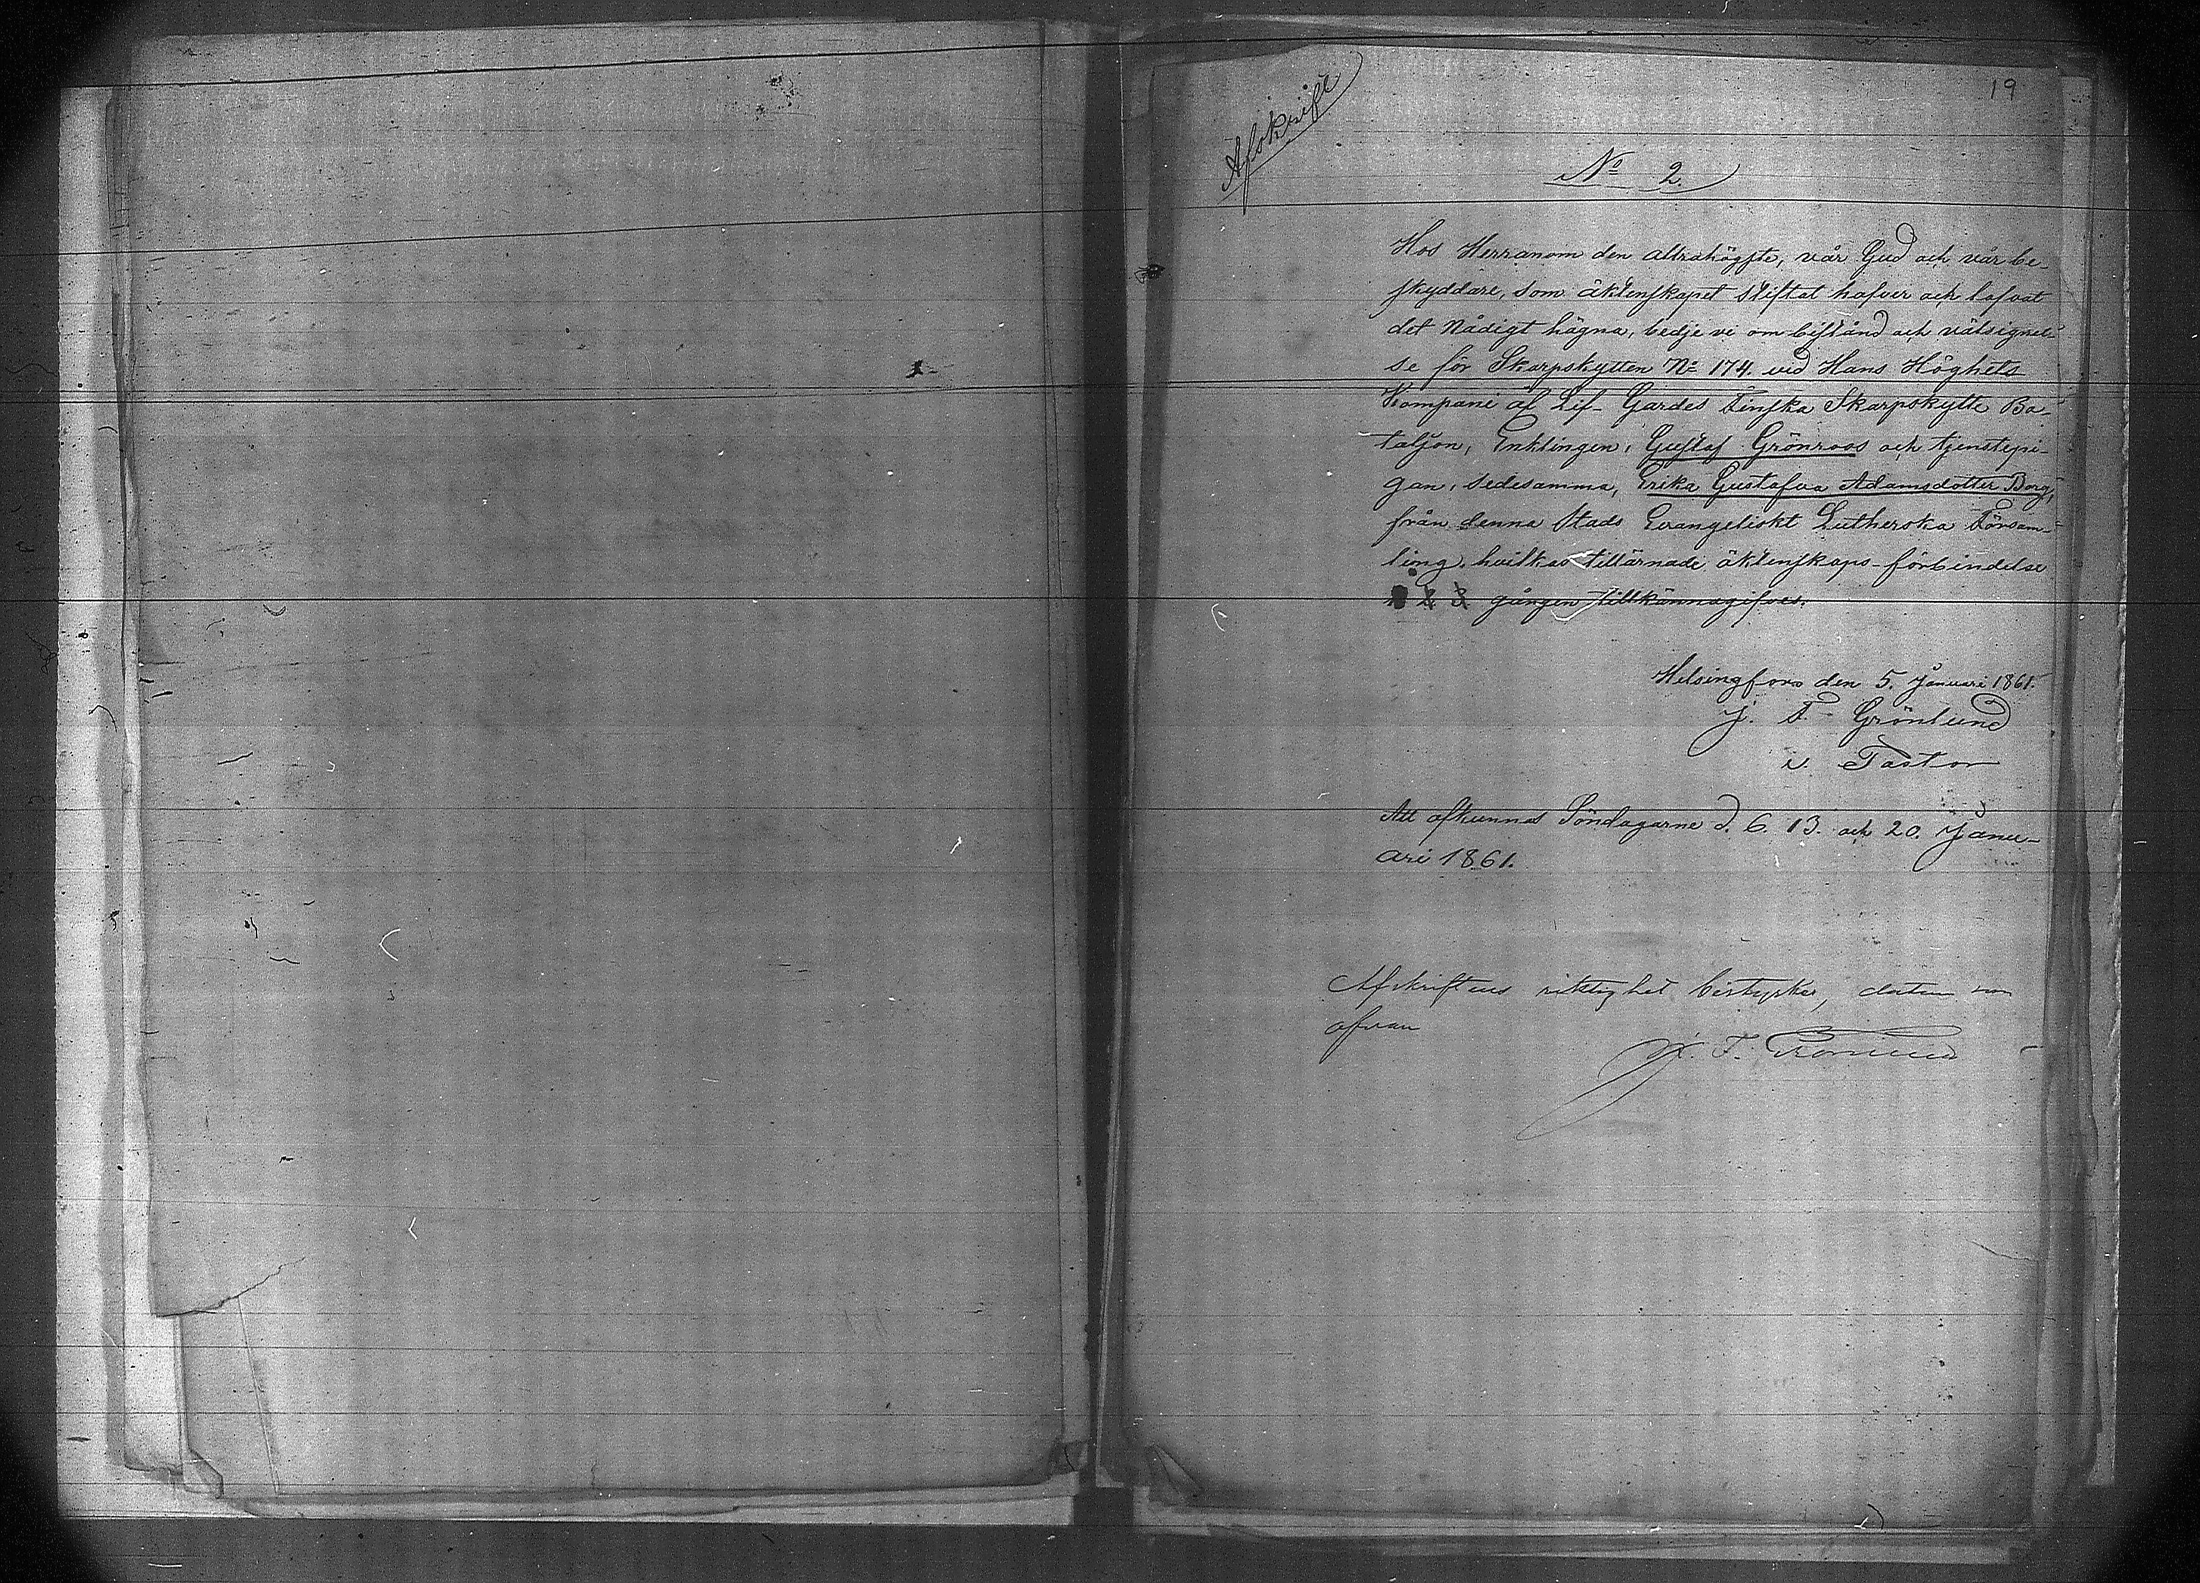 19
Afskrift
No 2.
Hos Herranom den allrahögste, vår Gud och vår be-
skyddare, som äktenskapet stiftat hafver och lofvat
det Nådigt hägna, bedje vi om bistånd och välsignel-
se för Skarpskytten No 174 vid Hans Höghets
Kompani af Lif-Gardes Finska Skarpskytte Ba-
taljon, Enklingen, Gustaf Grönroos och tjenstepi-
gan, sedesamma, Erika Gustafva Adamsdotter Borg,
från denna Stads Evangeliskt Lutherska Försam-
ling, hvilkas tillärnade äktenskaps-förbindelse
1 2 3 gången tillkännagifves.
Helsingfors den 5. Januari 1861.
J. F. Grönlund
v. Pastor
Att afkunnas Söndagarne d. 6. 13. och 20. Janu-
ari 1861.
Afskriftens riktighet bestyrker, datum som
ofvan
J. F. Grönlund